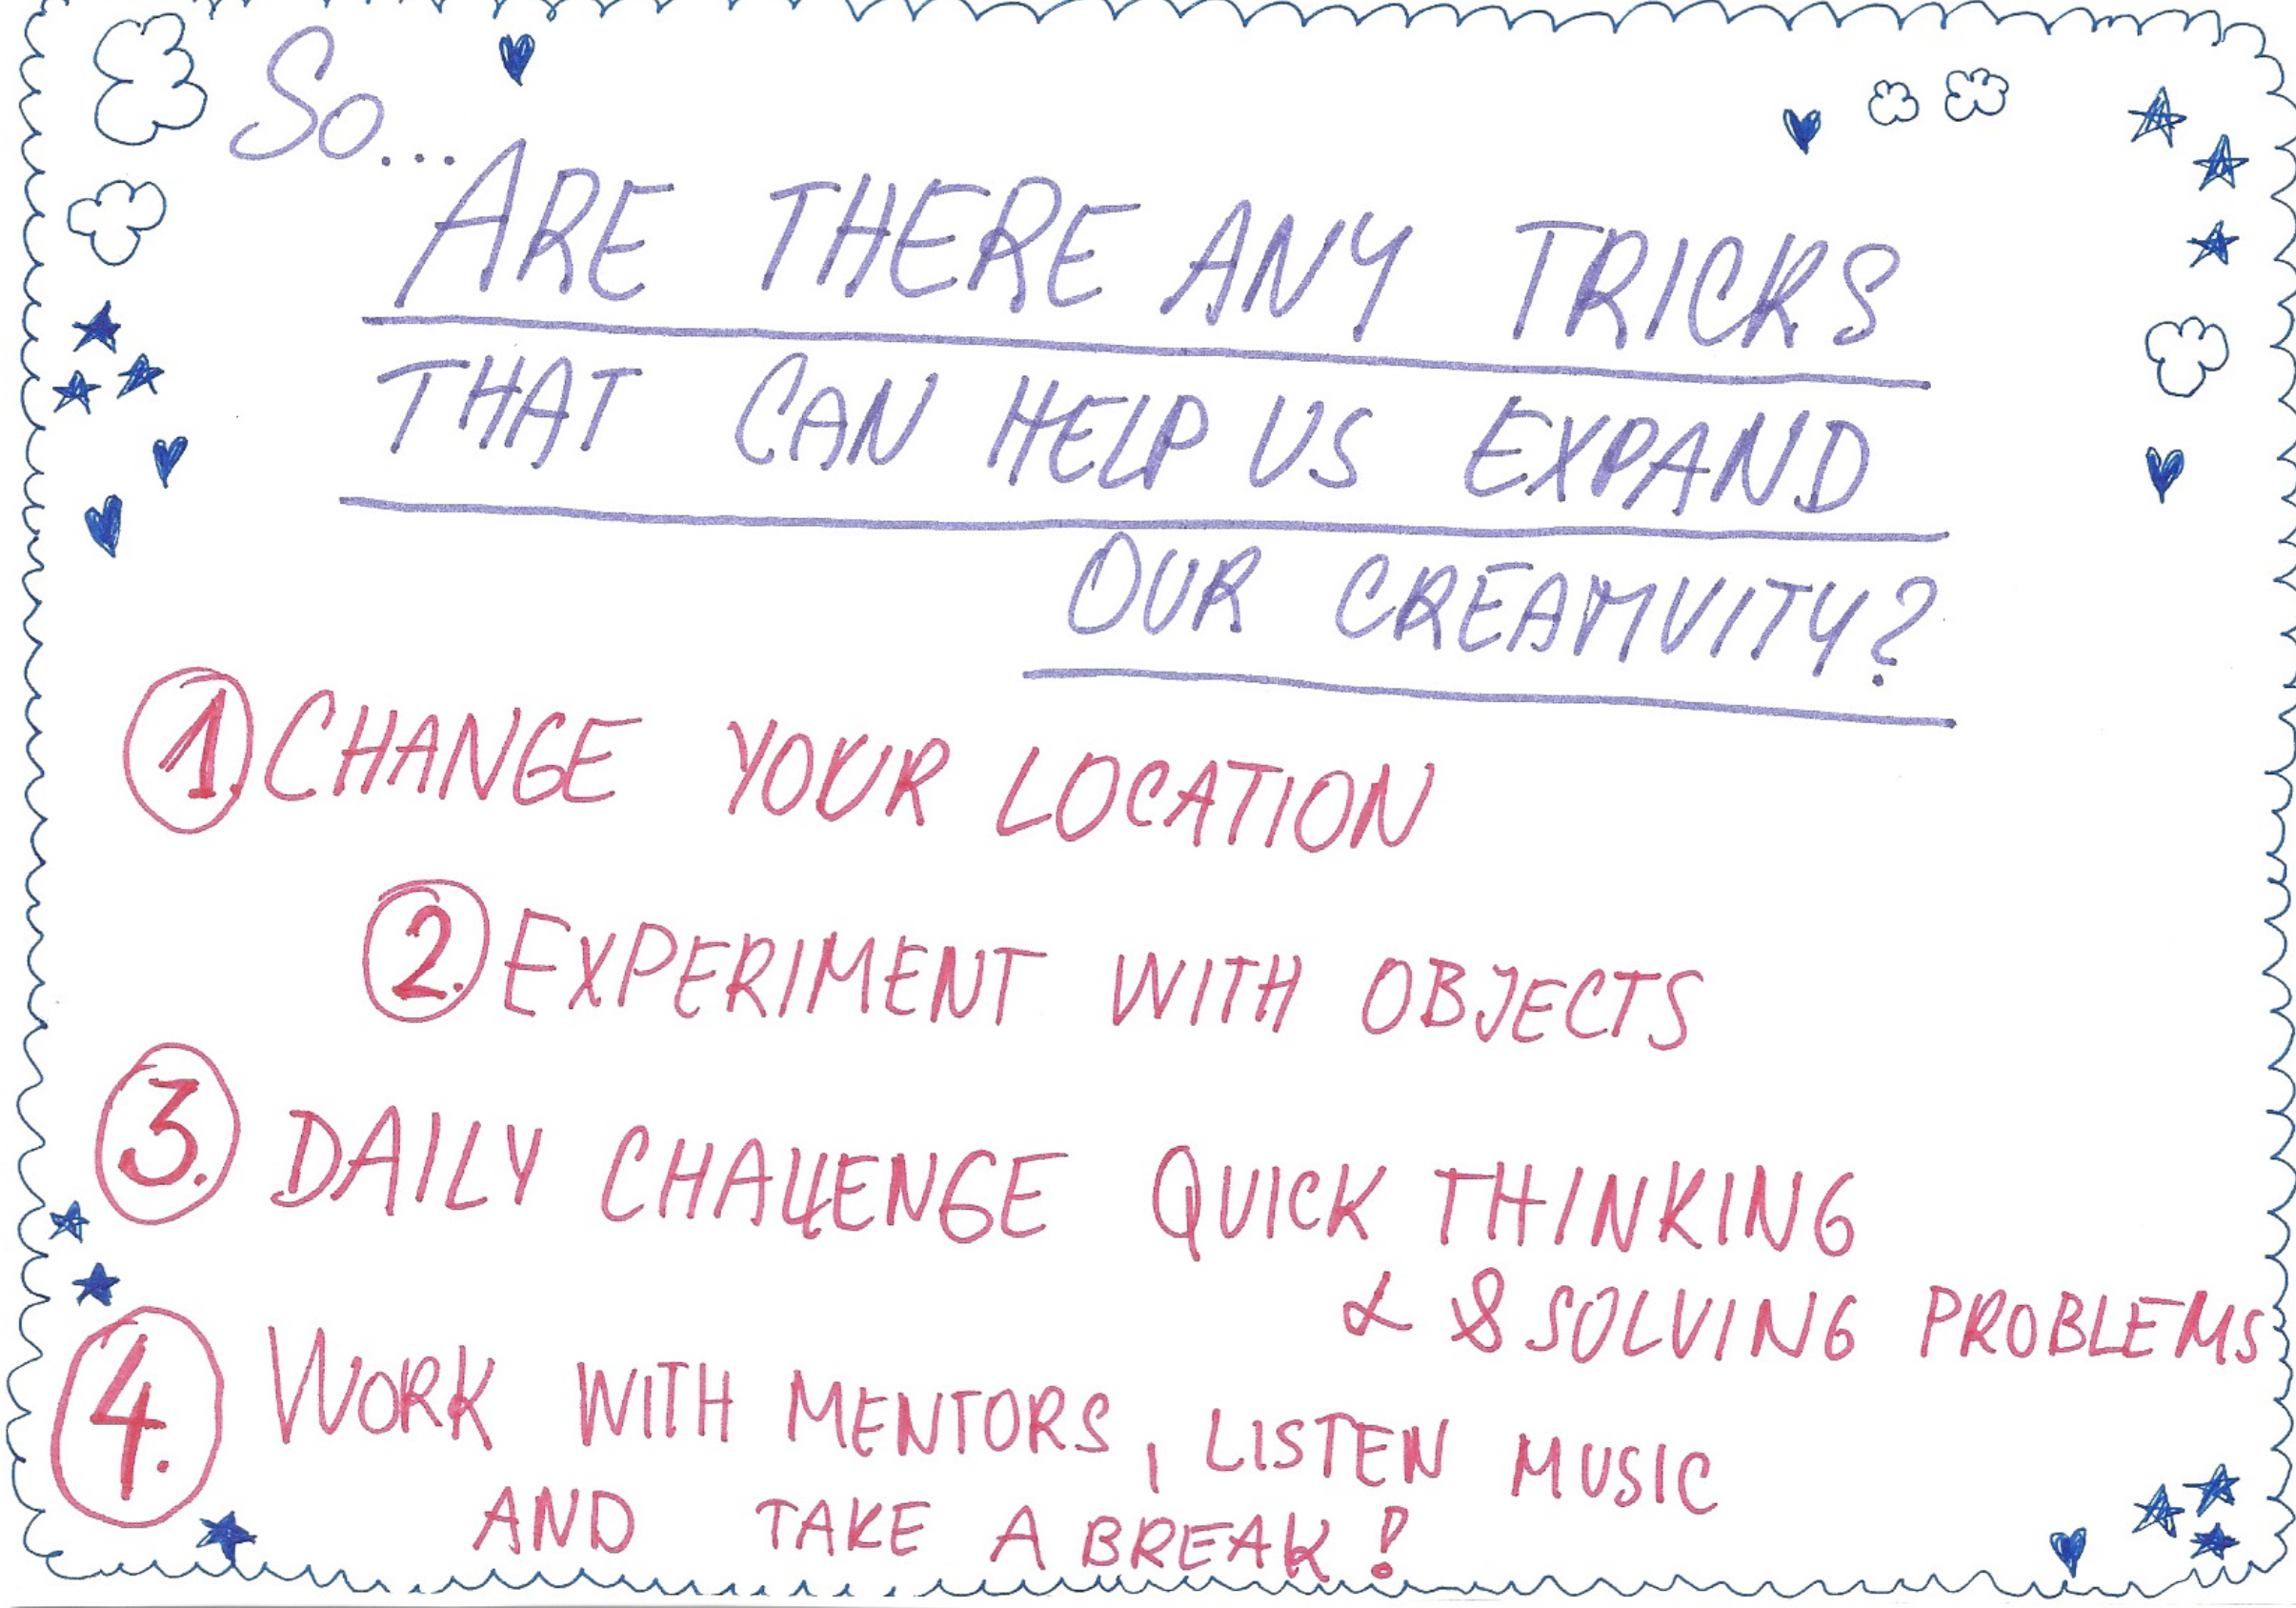 So...
ARE THERE ANY TRICKS
THAT CAN HELP US EXPAND
OUR CREAMVITY?
1. CHANGE YOUR LOCATION
2. EXPERIMENT WITH OBJECTS
3. DAILY CHALLENGE QUICK THINKING
& & SOLVING PROBLEMS
4. WORK WITH MENTORS, LISTEN MUSIC
AND TAKE A BREAK!